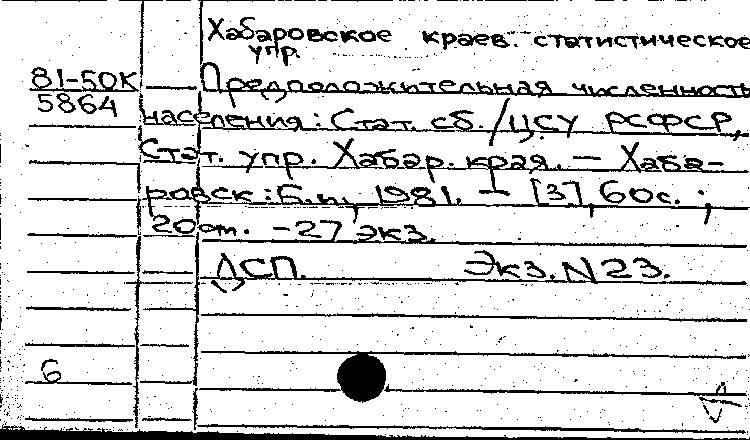 Хабаровское краев. статистическое
упр.
81-50К
5864
Предположительная численность
населения: Стат. сб./ЦСУ РСФСР,
Стат. упр. Хабар. края. — Хаба-
ровск: Б.и., 1981. — [3], 60с. ;
20см. -27 экз.
ДСП. Экз. N23.
6